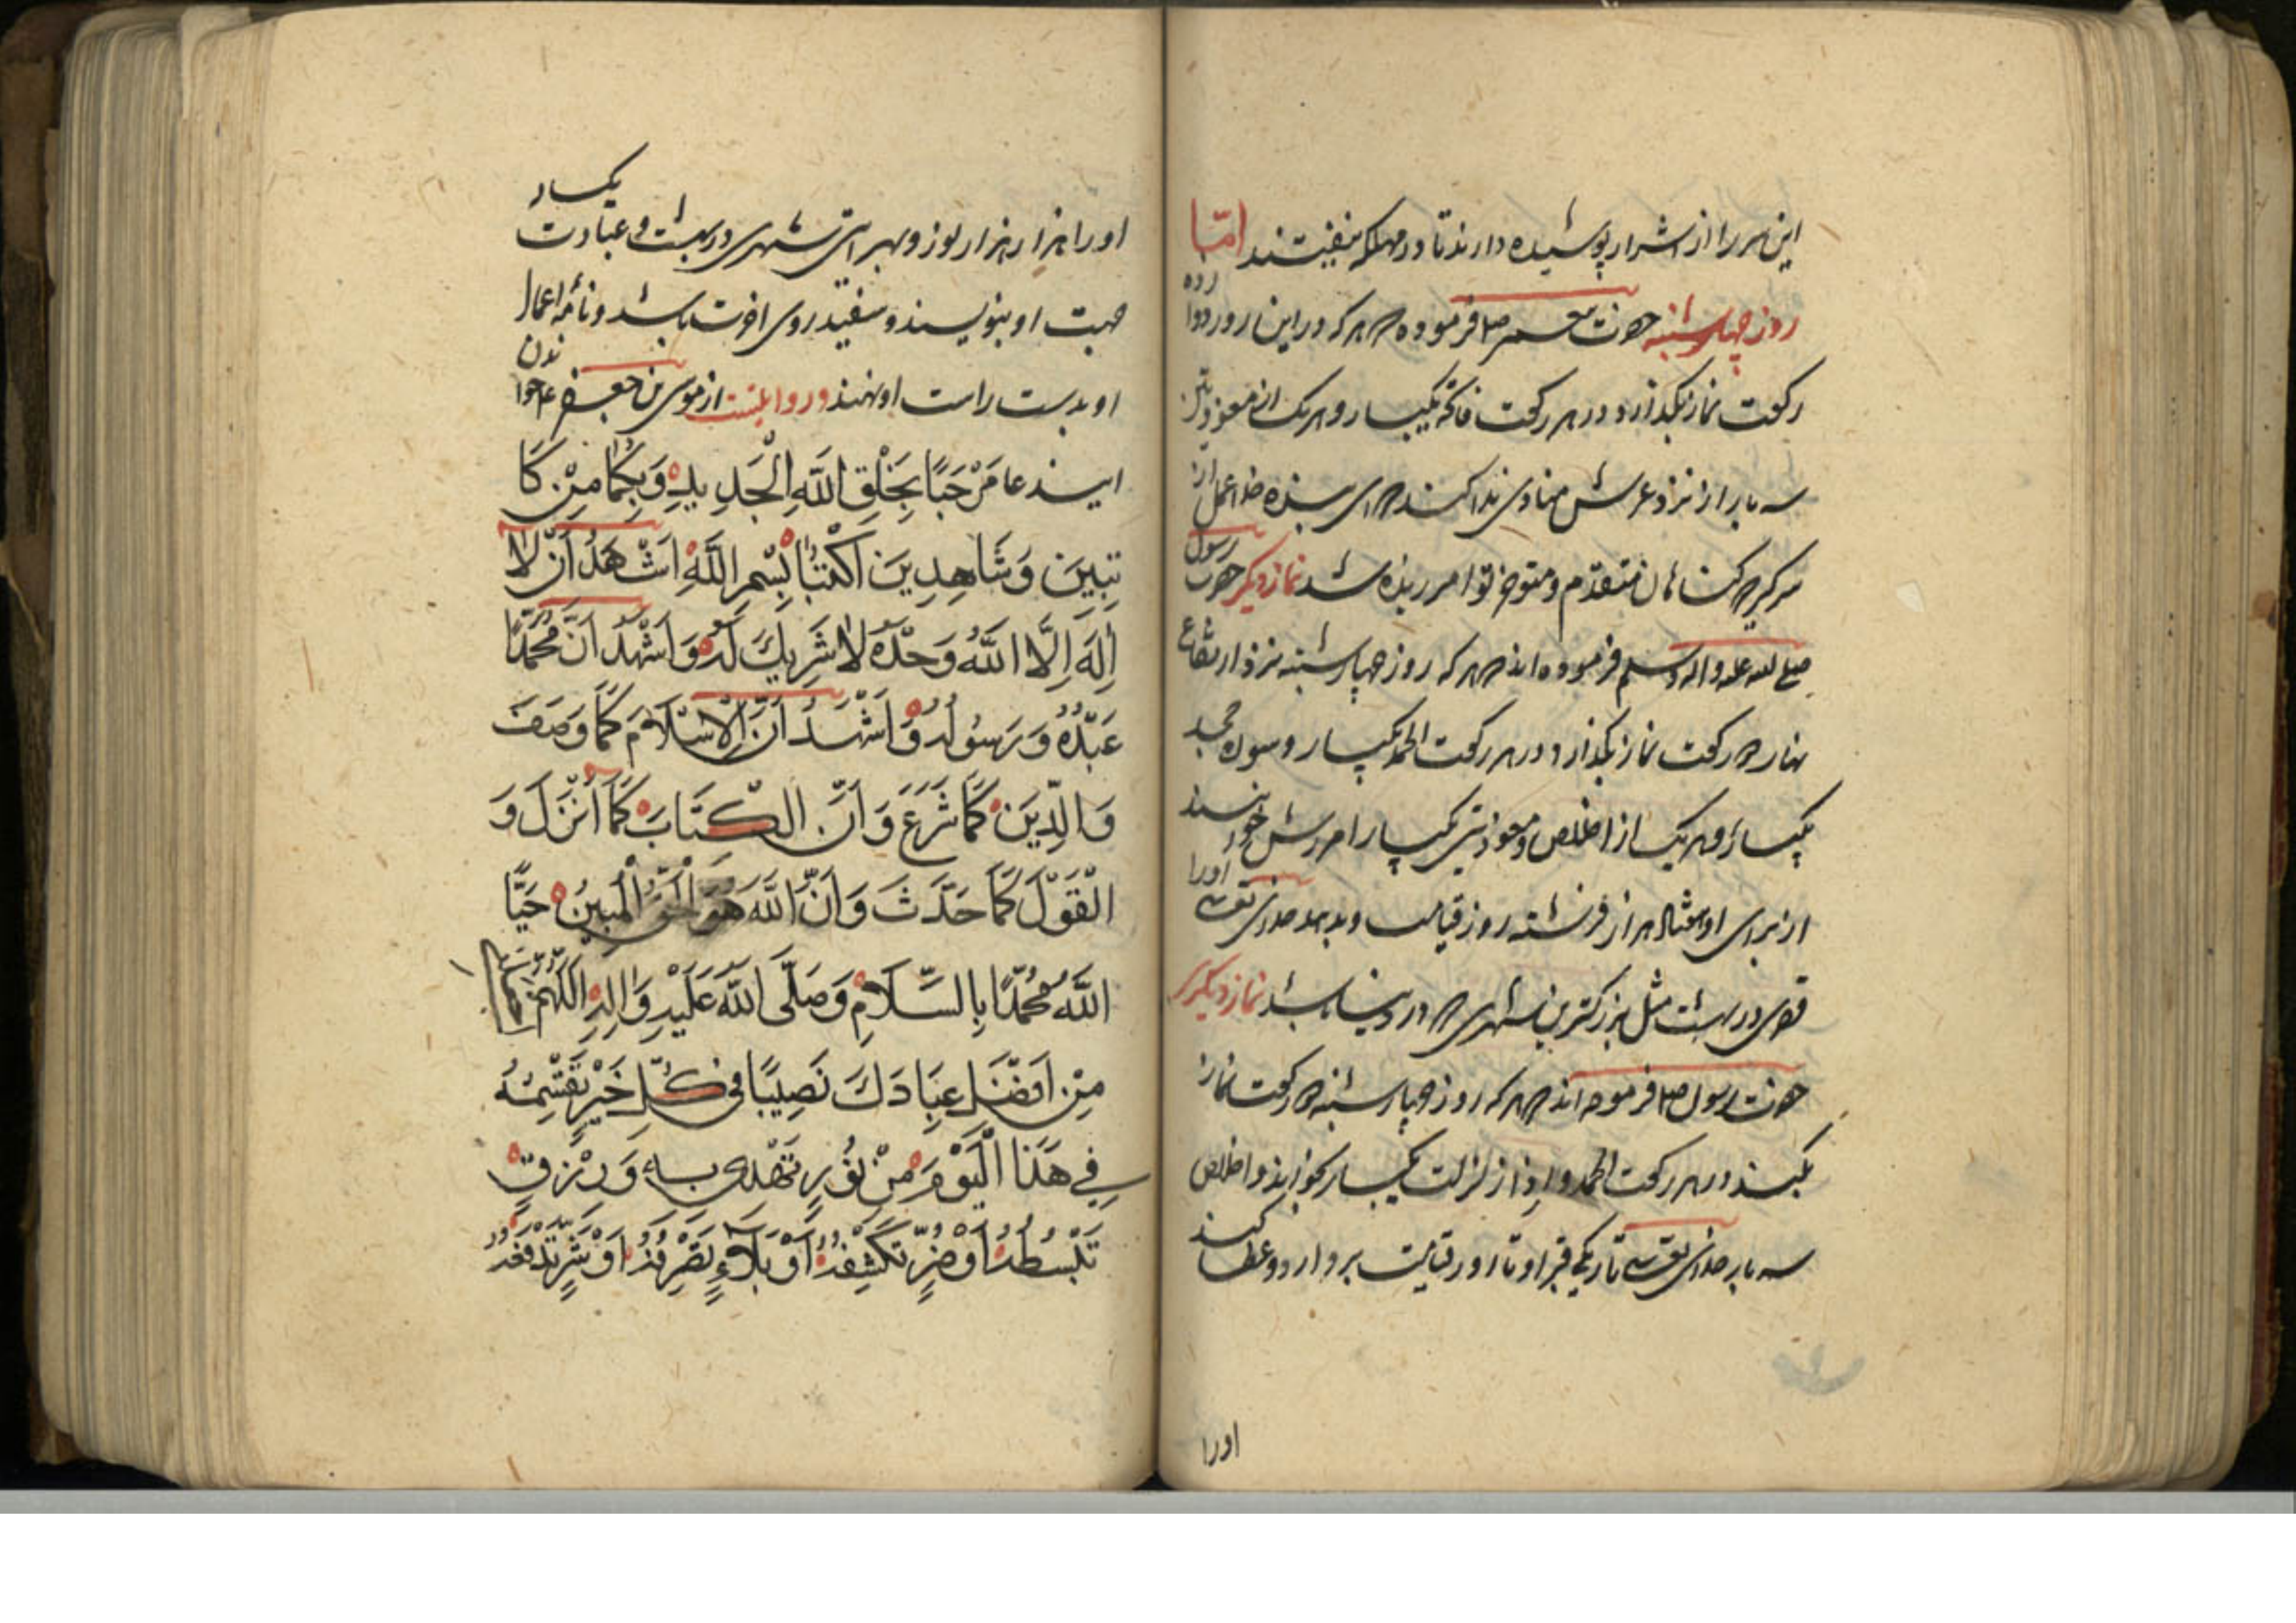 این سر را از اشرار پوشیده دارند تا در مهلکه نیفتند امّا
روز چهارشنبه حضرت پیغمبر ص فرموده که هر که در این روز دوازده
رکعت نماز بگذارد و در هر رکعت فاتحه یکبار و هر یک از معوذتین
سه بار از نزد عرش منادی ندا کند که ای بنده خدا عمل از
سر گیر که گناهان متقدم و متوخر تو آمرزیده شد نماز دیگر حضرت رسول
صلی الله علیه و اله وسلم فرموده اند که هر که روز چهارشنبه نزد ارتفاع
نهار رکعت نماز بگذارد و در هر رکعت الحمد یکبار و سوره
یکبار و هر یک از اخلاص و معوذتین یکبار آمرزش خواهند
از برای او هزار فرشته روز قیامت و بدهد خدای تعالی او را
قصری در بهشت مثل بزرگترین شهری که در دنیا باشد نماز دیگر
حضرت رسول ص فرموده اند که هر که روز چهارشنبه رکعت نماز
بکند در هر رکعت الحمد و اذا زلزلت یکبار بخواند و اخلاص
سه بار خدای تعالی تاریکی قبر او تا روز قیامت بردارد و عطا کند
اورا
او را هزار هزار نور و شهری در بهشت و عبادت یکساله
جهت او بنویسند و سفید روی آخرت باشد و نامه اعمال
او بدست راست او نهند و روایتست از موسی بن جعفر ع خواندن
این دعا مَرْحَبًا بِخَلْقِ اللَّهِ الْجَدِيدِ وَبِكُمَا مِنْ كَا
تِبِينَ وَشَاهِدِينَ اكْتُبَا بِسْمِ اللَّهِ اَشْهَدُ اَنْ لَا
اِلَهَ اِلَّا اللَّهُ وَحْدَهُ لَا شَرِيكَ لَهُ وَاَشْهَدُ اَنَّ مُحَمَّدًا
عَبْدُهُ وَرَسُولُهُ وَاَشْهَدُ اَنَّ الْاِسْلَامَ كَمَا وَصَفَ
وَالدِّينَ كَمَا شَرَعَ وَاَنَّ الْكِتَابَ كَمَا اَنْزَلَ وَ
الْقَوْلَ كَمَا حَدَّثَ وَاَنَّ اللَّهَ هُوَ الْحَقُّ الْمُبِينُ حَيَّا
اللَّهُ مُحَمَّدًا بِالسَّلَامِ وَصَلَّى اللَّهُ عَلَيْهِ وَالِهِ اللَّهُمَّ
مِنْ اَفْضَلِ عِبَادِكَ نَصِيبًا فِي كُلِّ خَيْرٍ تَقْسِمُهُ
فِي هَذَا الْيَوْمِ مِنْ نُورٍ تَهْدِي بِهِ وَرِزْقٍ
تَبْسُطُهُ اَوْ ضُرٍّ تَكْشِفُهُ اَوْ بَلَاءٍ تَصْرِفُهُ اَوْ شَرٍّ تَدْفَعُهُ